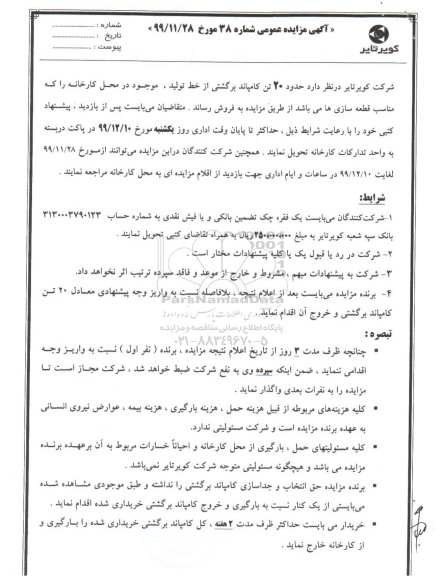 شماره :
« آگهی مزایده عمومی شماره ۳۸ مورخ ۹۹/۱۱/۲۸ »
تاریخ :
پیوست :
کویرتایر
شرکت کویرتایر درنظر دارد حدود ۲۰ تن کامپاند برگشتی از خط تولید ، موجود در محل کارخانه را که
مناسب قطعه سازی ها می باشد از طریق مزایده به فروش رساند . متقاضیان می‌بایست پس از بازدید ، پیشنهاد
کتبی خود را با رعایت شرایط ذیل ، حداکثر تا پایان وقت اداری روز یکشنبه مورخ ۹۹/۱۲/۱۰ در پاکت دربسته
به واحد تدارکات کارخانه تحویل نمایند . همچنین شرکت کنندگان دراین مزایده می‌توانند ازمورخ ۹۹/۱۱/۲۸
لغایت ۹۹/۱۲/۱۰ در ساعات و ایام اداری جهت بازدید از اقلام مزایده ای به محل کارخانه مراجعه نمایند .
شرایط:
۱-شرکت‌کنندگان می‌بایست یک فقره چک تضمین بانکی و یا فیش نقدی به شماره حساب ۳۱۳۰۰۰۳۷۹۰۱۲۳
بانک سپه شعبه کویرتایر به مبلغ ۲۵۰.۰۰۰.۰۰۰ریال به همراه تقاضای کتبی تحویل نمایند .
۲- شرکت در رد یا قبول یک یا کلیه پیشنهادات مختار است .
۳- شرکت به پیشنهادات مبهم ، مشروط و خارج از موعد و فاقد سپرده ترتیب اثر نخواهد داد.
۴- برنده مزایده می‌بایست بعد از اعلام نتیجه ، بلافاصله نسبت به واریز وجه پیشنهادی معادل ۲۰ تن
کامپاند برگشتی و خروج آن اقدام نماید.
ParsNamadData
پایگاه اطلاع رسانی مناقصه و مزایده
۰۲۱-۸۸۳۴۹۶۷۰-۵
تبصره :
▪ چنانچه ظرف مدت ۳ روز از تاریخ اعلام نتیجه مزایده ، برنده ( نفر اول ) نسبت به واریز وجه
اقدامی ننماید ، ضمن اینکه سپرده وی به نفع شرکت ضبط خواهد شد ، شرکت مجاز است تا
مزایده را به نفرات بعدی واگذار نماید .
▪ کلیه هزینه‌های مربوطه از قبیل هزینه حمل ، هزینه بارگیری ، هزینه بیمه ، عوارض نیروی انسانی
به عهده برنده مزایده است و شرکت مسئولیتی ندارد.
▪ کلیه مسئولیتهای حمل ، بارگیری از محل کارخانه و احیاناً خسارات مربوط به آن برعهده برنده
مزایده می باشد و هیچگونه مسئولیتی متوجه شرکت کویرتایر نمی‌باشد .
▪ برنده مزایده حق انتخاب و جداسازی کامپاند برگشتی را نداشته و طبق موجودی مشاهده شده
می‌بایستی از یک کنار نسبت به بارگیری و خروج کامپاند برگشتی خریداری شده اقدام نماید .
▪ خریدار می بایست حداکثر ظرف مدت ۲ هفته ، کل کامپاند برگشتی خریداری شده را بارگیری و
از کارخانه خارج نماید .